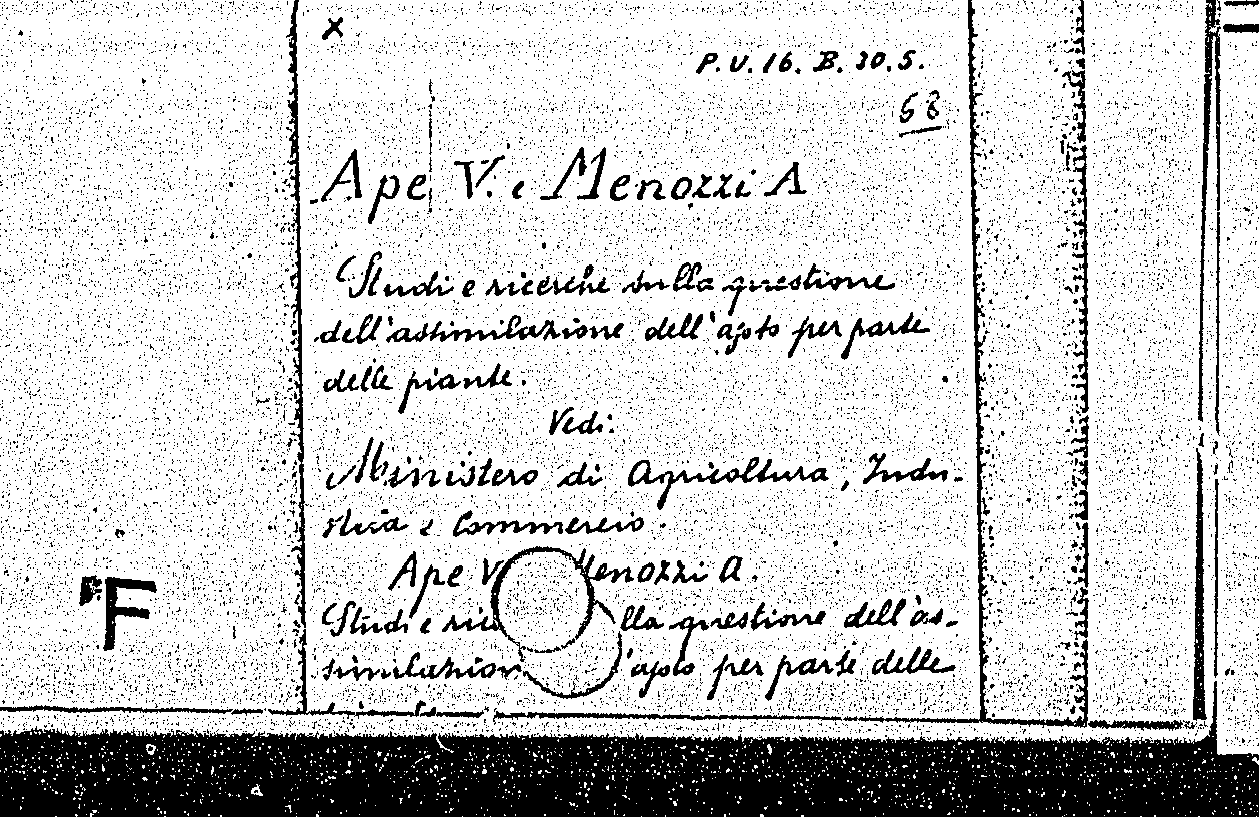 x
P.V. 16. B. 30.5.
58
Ape V. e Menozzi A
Studi e ricerche sulla questione
dell'assimilazione dell'azoto per parte
delle piante.
Vedi:
Ministero di Agricoltura, Indu-
stria e Commercio.
Ape V Menozzi A.
Studi e ric lla questione dell'as-
similazion l'azoto per parte delle
F